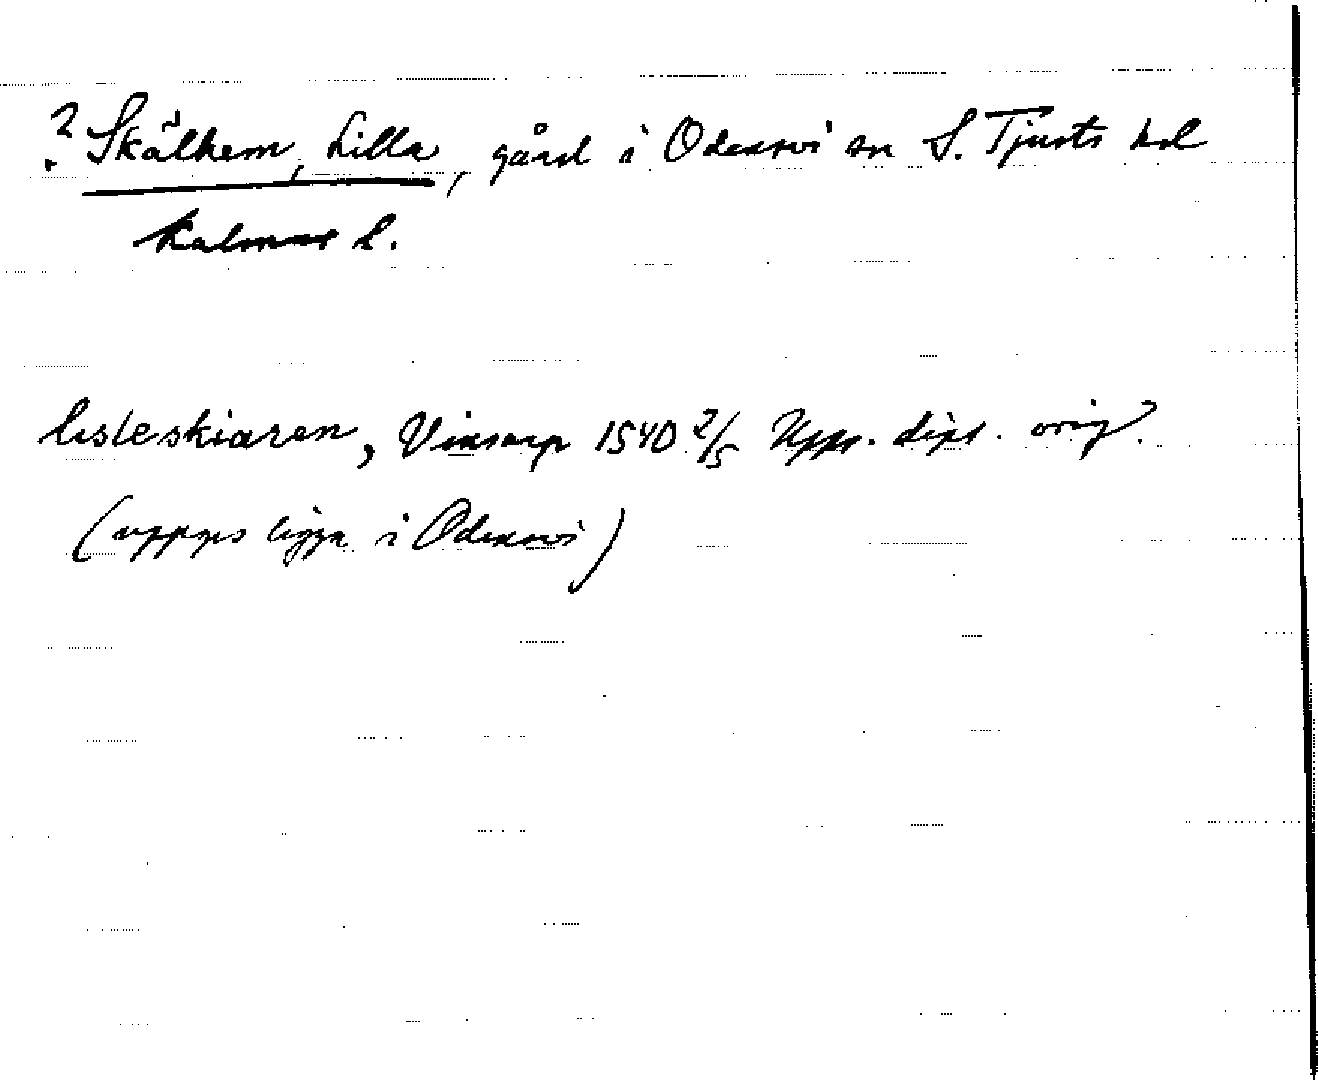 ? Skälhem, Lilla, gård i Odensvi sn S. Tjusts hd
Kalmar l.
lisleskiaren, Vinsarp 1540 2/5 Upps. dipl. orig.
(uppges ligga i Odensvi)